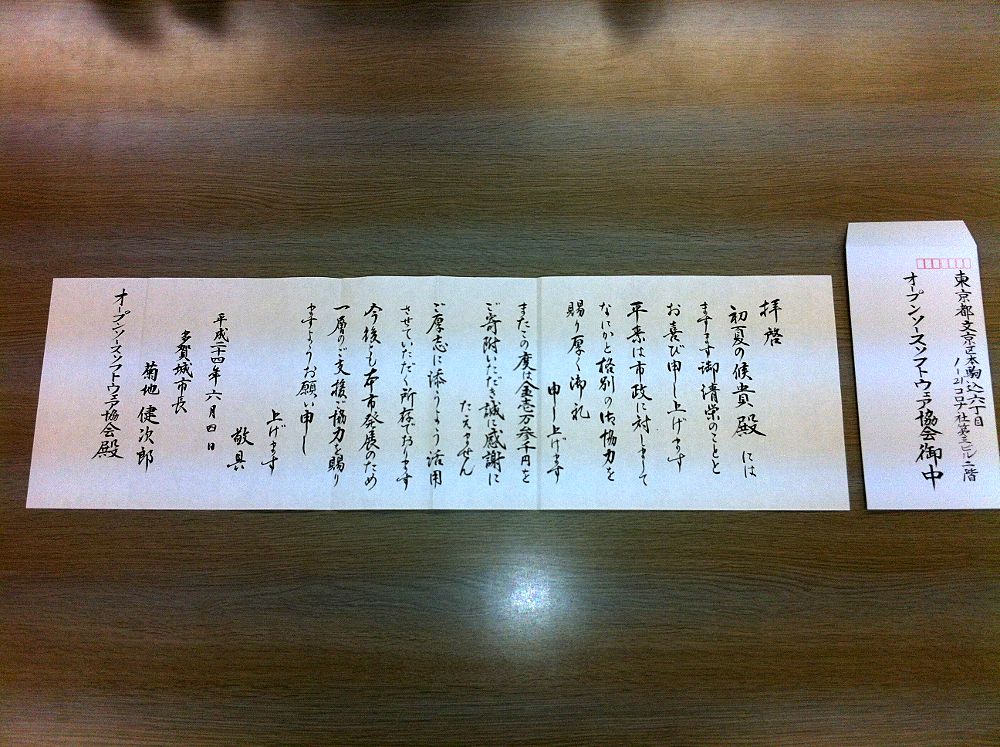 拝啓
初夏の候貴殿には
ますます御清栄のことと
お喜び申し上げます
平素は市政に対しまして
なにかと格別の御協力を
賜り厚く御礼
申し上げます
またこの度は金壱万参千円を
ご寄附いただき誠に感謝に
たえません
ご厚志に添うよう活用
させていただく所存でおります
今後とも本市発展のため
一層のご支援ご協力を賜り
ますようお願い申し
上げます
敬具
平成二十四年六月四日
多賀城市長
菊地健次郎
オープンソースソフトウェア協会殿
東京都文京区本駒込六丁目
コロナ社第三ビル二階
オープンソースソフトウェア協会御中